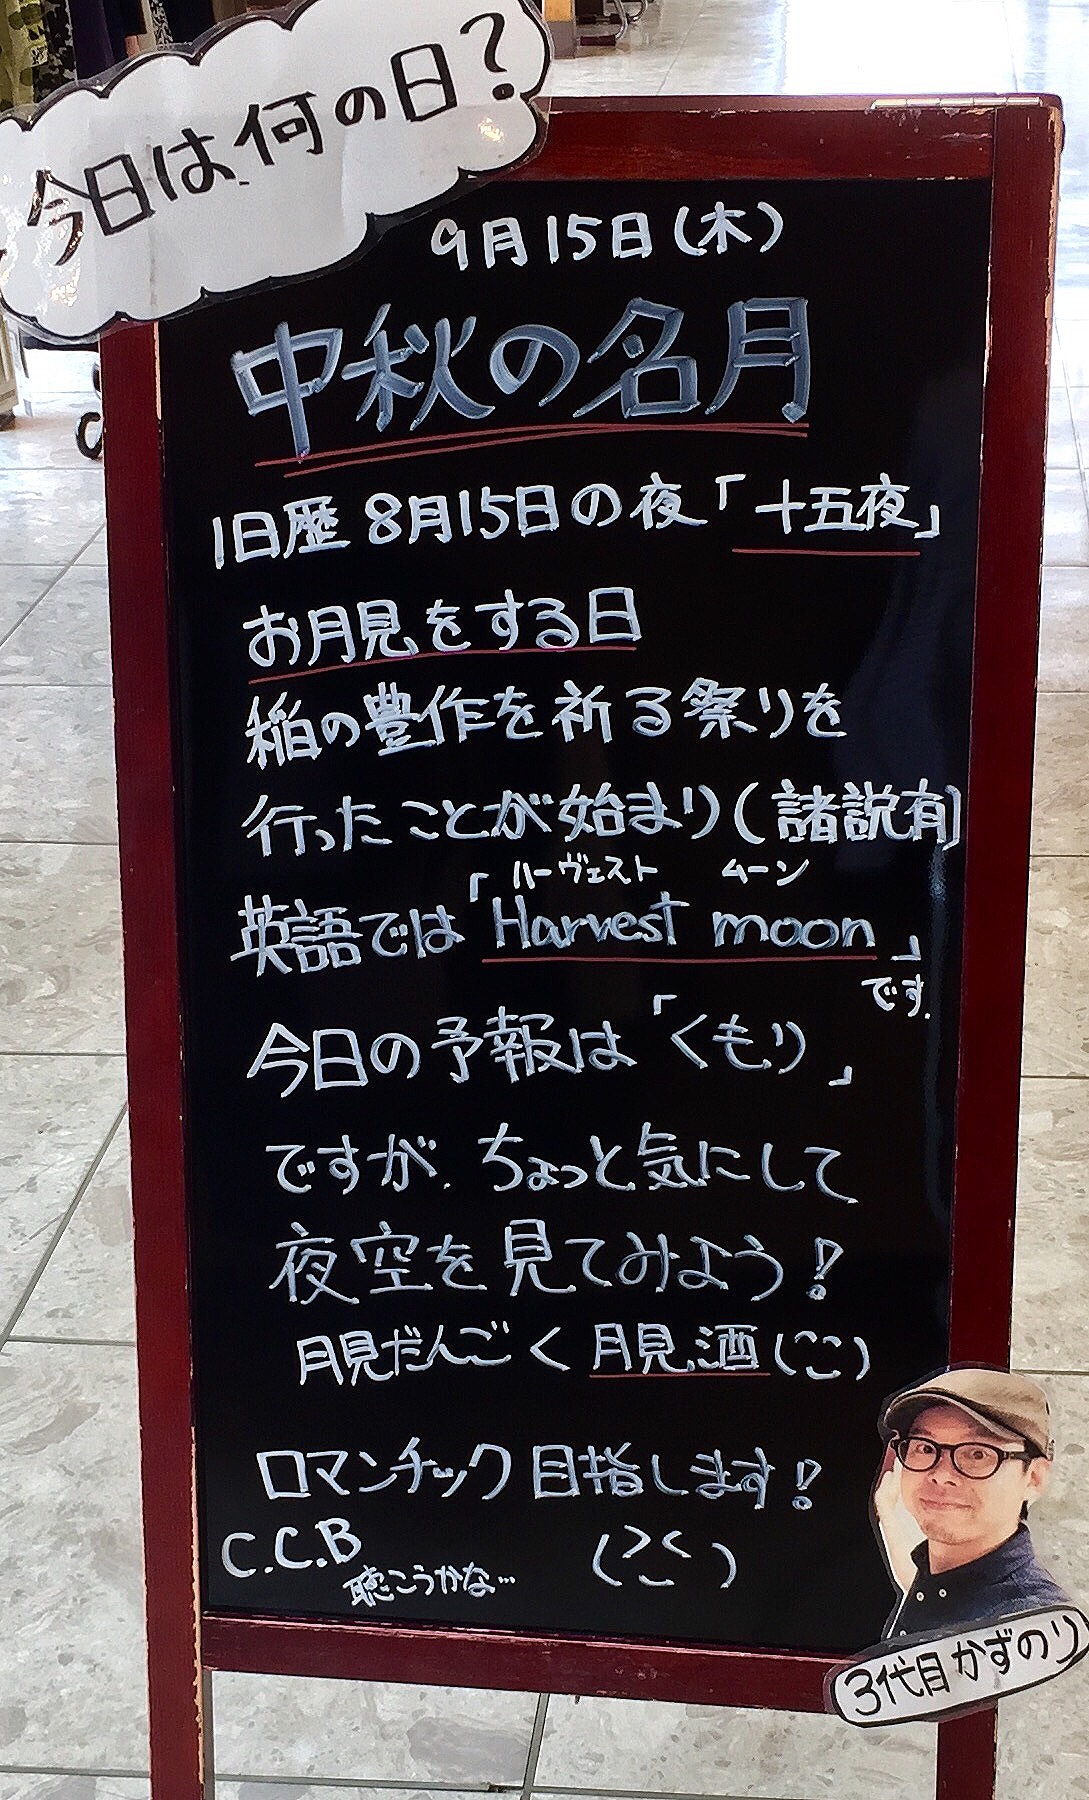 今日は何の日?
9月15日(木)
中秋の名月
旧歴 8月15日の夜「十五夜」
お月見をする日
稲の豊作を祈る祭りを
行ったことが始まり(諸説有)
ハーヴェスト ムーン
英語では「Harvest moon」
です.
今日の予報は「くもり」
ですが. ちょっと気にして
夜空を見てみよう!
月見だんごく月見酒(こ)
ロマンチック目指します!
C.C.B
聴こうかな…
3代目かずのり